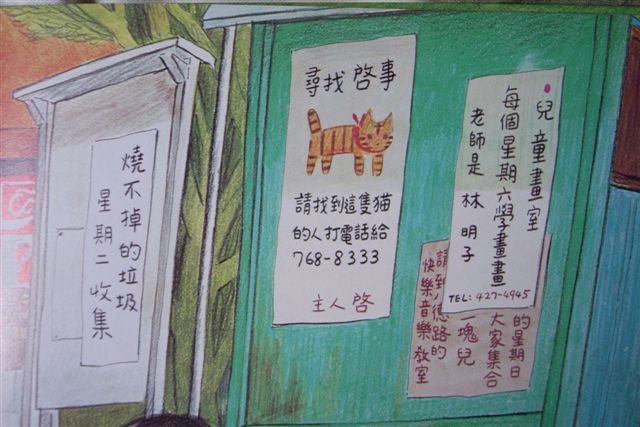 燒不掉的垃圾
星期二收集
尋找啓事
請找到這隻猫
的人打電話給
768-8333
主人啓
兒童畫室
每個星期六學畫畫
老師是 林 明子
TEL: 427-4945
的星期日
大家集合
一塊兒
請到 德路的
快樂音樂教室